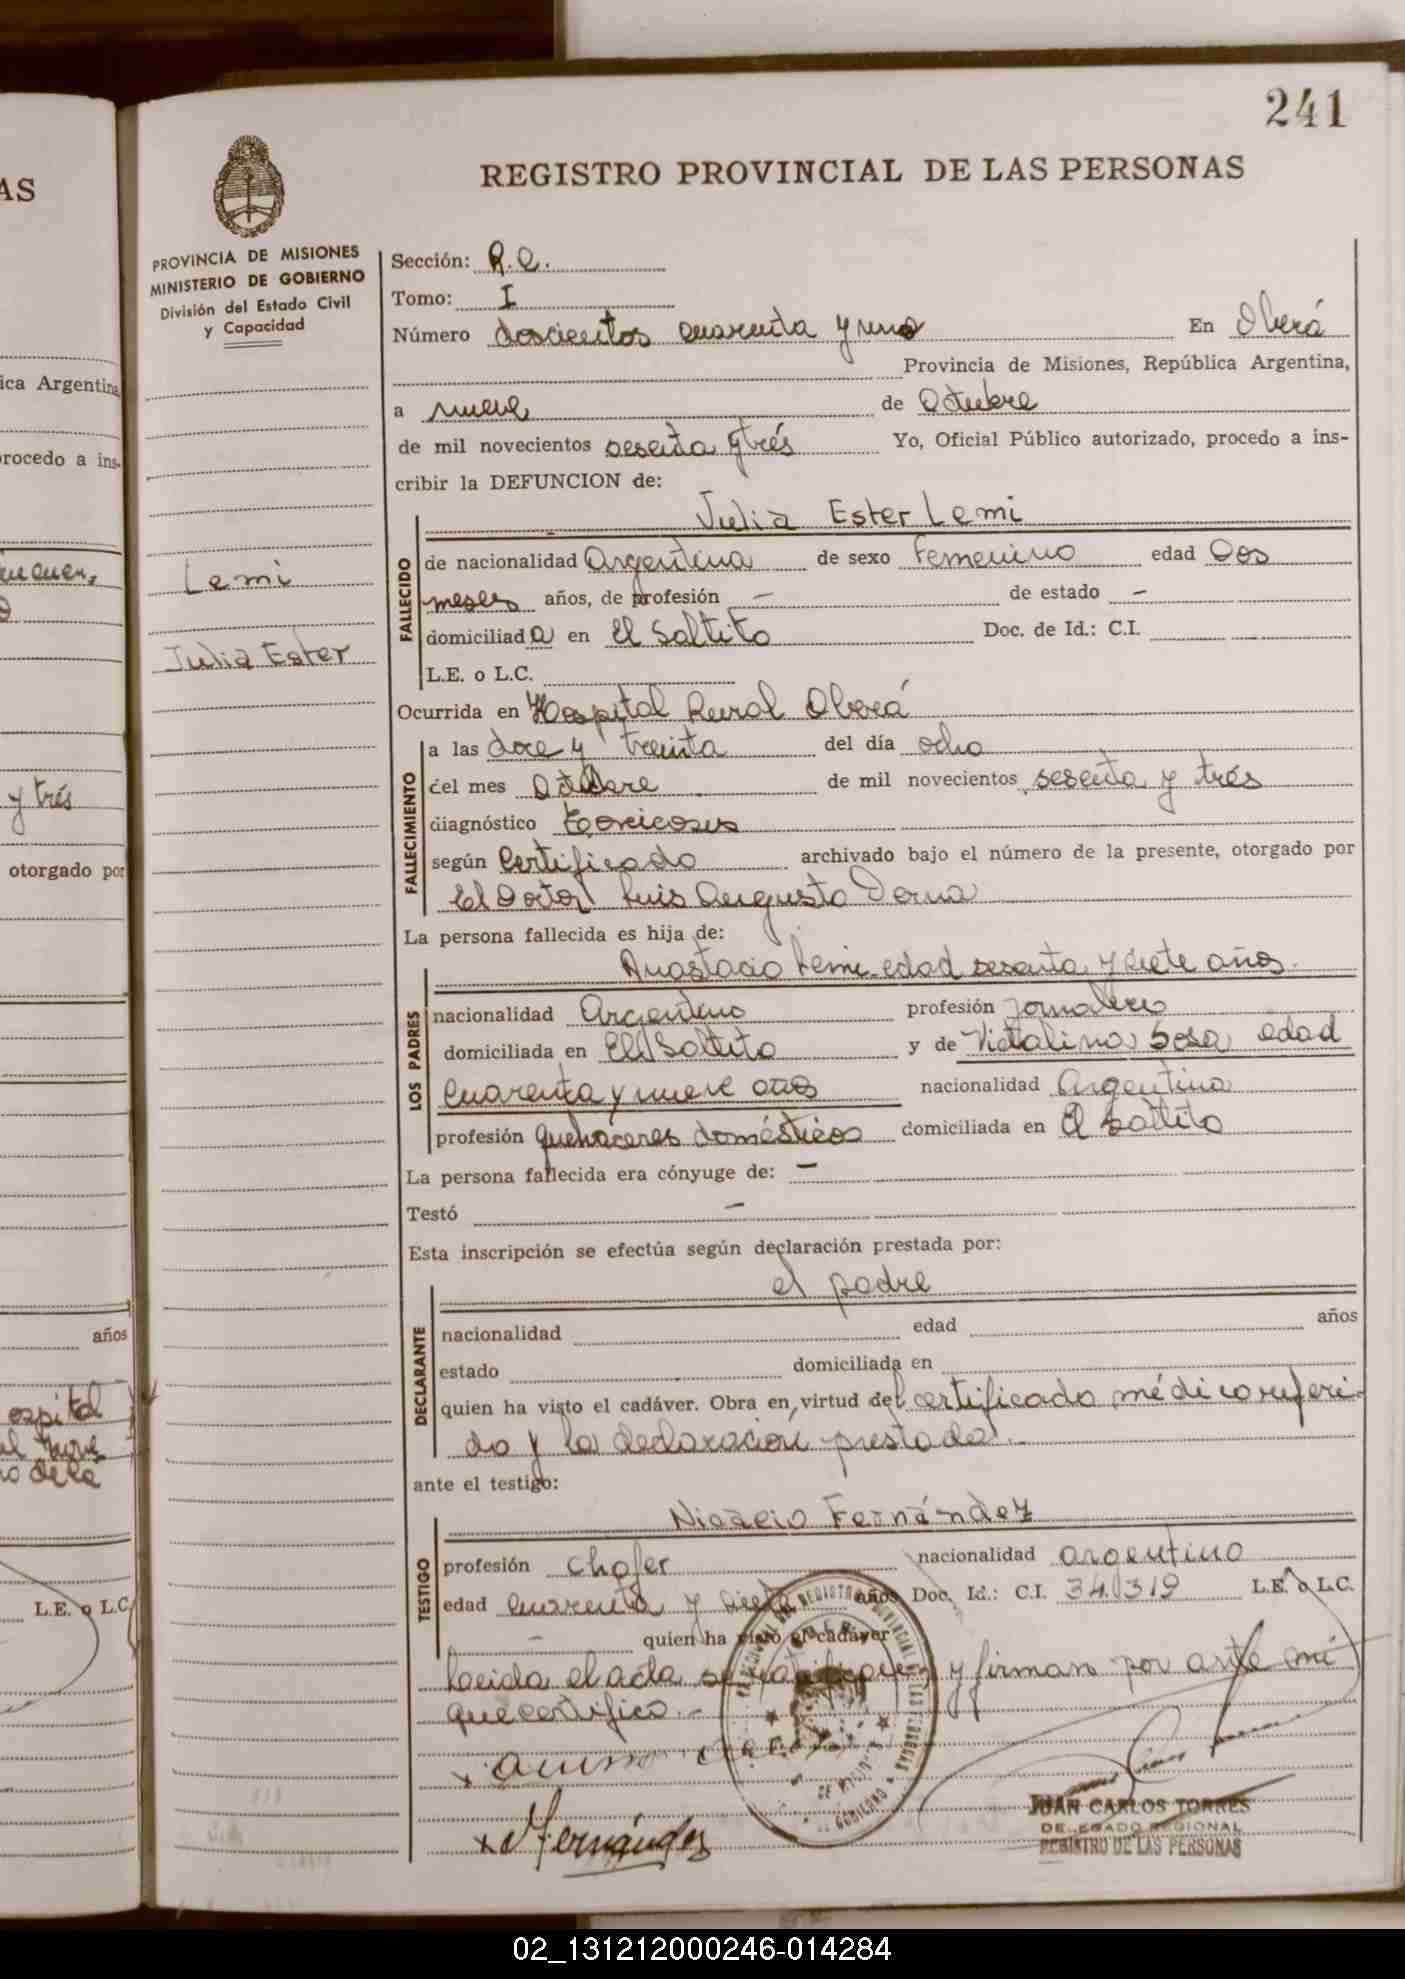 241
AS
REGISTRO PROVINCIAL DE LAS PERSONAS
PROVINCIA DE MISIONES
MINISTERIO DE GOBIERNO
División del Estado Civil
y Capacidad
Sección: R.C.
Tomo: I
Número doscientos cuarenta y uno En Oberá
ica Argentina,
Provincia de Misiones, República Argentina,
a nueve de Octubre
rocedo a ins-
de mil novecientos sesenta y trés Yo, Oficial Público autorizado, procedo a ins-
cribir la DEFUNCION de:
Julia Ester Lemi
FALLECIDO
de nacionalidad Argentina de sexo Femenino edad Dos
Lemi
meses años, de profesión — de estado —
domiciliada en El Saltito Doc. de Id.: C.I.
Julia Ester
L.E. o L.C.
Ocurrida en Hospital Rural Oberá
FALLECIMIENTO
a las doce y treinta del día ocho
y trés
del mes Octubre de mil novecientos sesenta y trés
diagnóstico
otorgado por
según Certificado archivado bajo el número de la presente, otorgado por
el Doctor Luis Augusto Derna
La persona fallecida es hija de:
Anastacio Lemi edad sesenta y siete años.
LOS PADRES
nacionalidad Argentino profesión Jornalero
domiciliada en El Saltito y de Victalina Sosa edad
Cuarenta y nueve años nacionalidad Argentina
profesión quehaceres domésticos domiciliada en El Saltito
La persona fallecida era cónyuge de: —
Testó —
Esta inscripción se efectúa según declaración prestada por:
el padre
DECLARANTE
años
nacionalidad edad años
estado domiciliada en
quien ha visto el cadáver. Obra en virtud del certificado médico referi-
ospital
do y la declaración prestada.
de la
ante el testigo:
Nicacio Fernández
TESTIGO
profesión Chofer nacionalidad argentino
edad cuarenta y siete años Doc. Id.: C.I. 34.319 L.E. o L.C.
L.E. o L.C.
— quien ha visto el cadáver
Leída el acta se ratifican y firman por ante mi
que certifico.-
x Fernández
JUAN CARLOS TORRES
DELEGADO REGIONAL
REGISTRO DE LAS PERSONAS
02_131212000246-014284